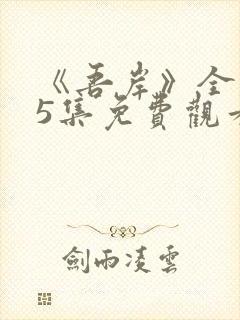 《吾岸》全
5集免費觀看
劍雨凌雲